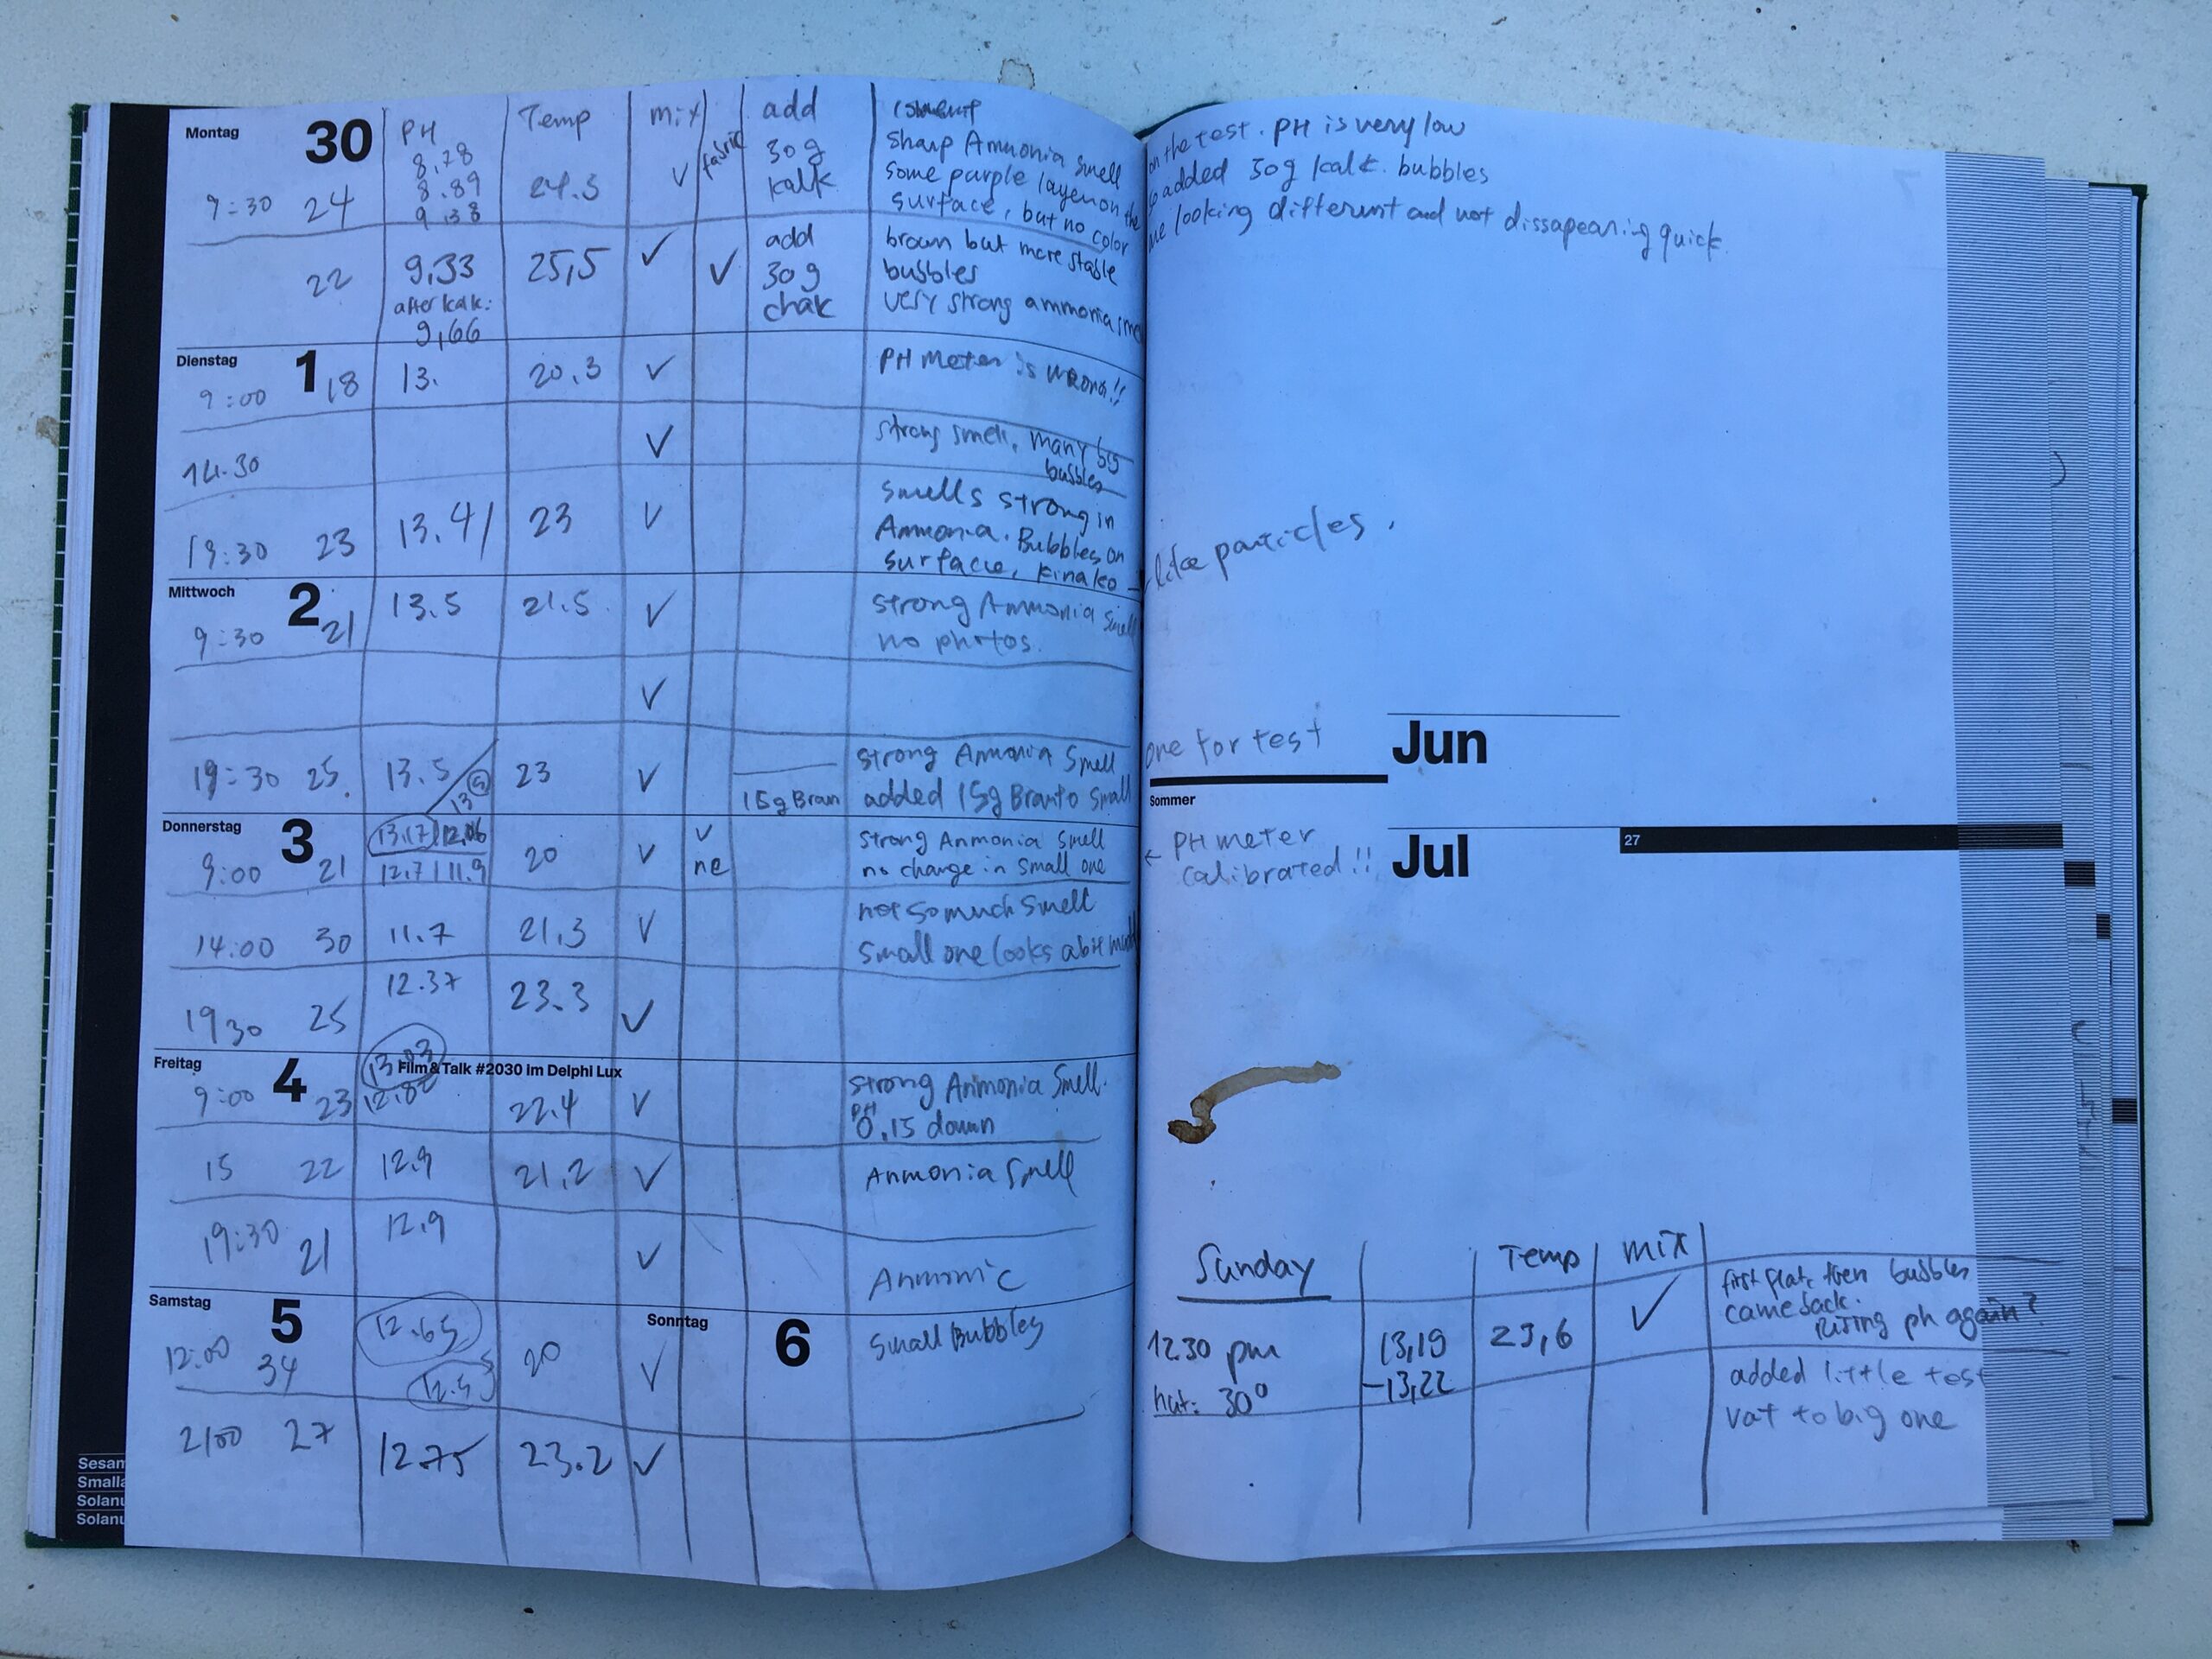 Montag 30 PH Temp mix fabric add
9:30 24 8,78 24.3 ✓ 30g kalk sharp Ammonia smell
8.89 some purple layer on the
9,38 surface, but no color
on the test. PH is very low
added 30g kalk. bubbles
looking different and not dissapearing quick.
22 9,33 25,5 ✓ ✓ add brown but more stable
after kalk: 30g bubbles
9,66 chak very strong ammonia
Dienstag 1
9:00 18 13. 20.3 ✓ PH Meter is wrong!!
14.30 ✓ strong smell, many big
bubbles
19:30 23 13.41 23 ✓ smells strong in
Ammonia. Bubbles on
surface, kinako –
like particles.
Mittwoch 2
9:30 21 13.5 21.5 ✓ strong Ammonia smell
no photos.
✓
19:30 25. 13.5 / 13 23 ✓ strong Ammonia Smell
15g Bran added 15g Bran to small
one for test
Jun
Sommer
Jul
27
Donnerstag 3
9:00 21 13.17/12.06 20 ✓ ✓ strong Anmonia Smell
12.7/11.9 ne no change in small one
← PH meter
calibrated!!
14:00 30 11.7 21,3 ✓ not so much smell
small one looks a bit
1930 25 12.37 23.3 ✓
Freitag 4 Film & Talk #2030 im Delphi Lux
9:00 23 13.03 22.4 ✓ strong Anmonia Smell.
12.82 PH 0.15 down
15 22 12.9 21,2 ✓ Anmonia smell
19:30 21 12.9 ✓ Anmonic
Samstag 5 Sonntag 6
12:00 34 12.65 20 ✓ Small Bubbles
12.5
2100 27 12.75 23.2 ✓
Sunday Temp mix
12.30 pm 13,19 23,6 ✓ first flat, then bubbles
came back.
Rising ph again?
hut: 30° –13,22 added little test
vat to big one
Sesam
Smalla
Solanu
Solanu